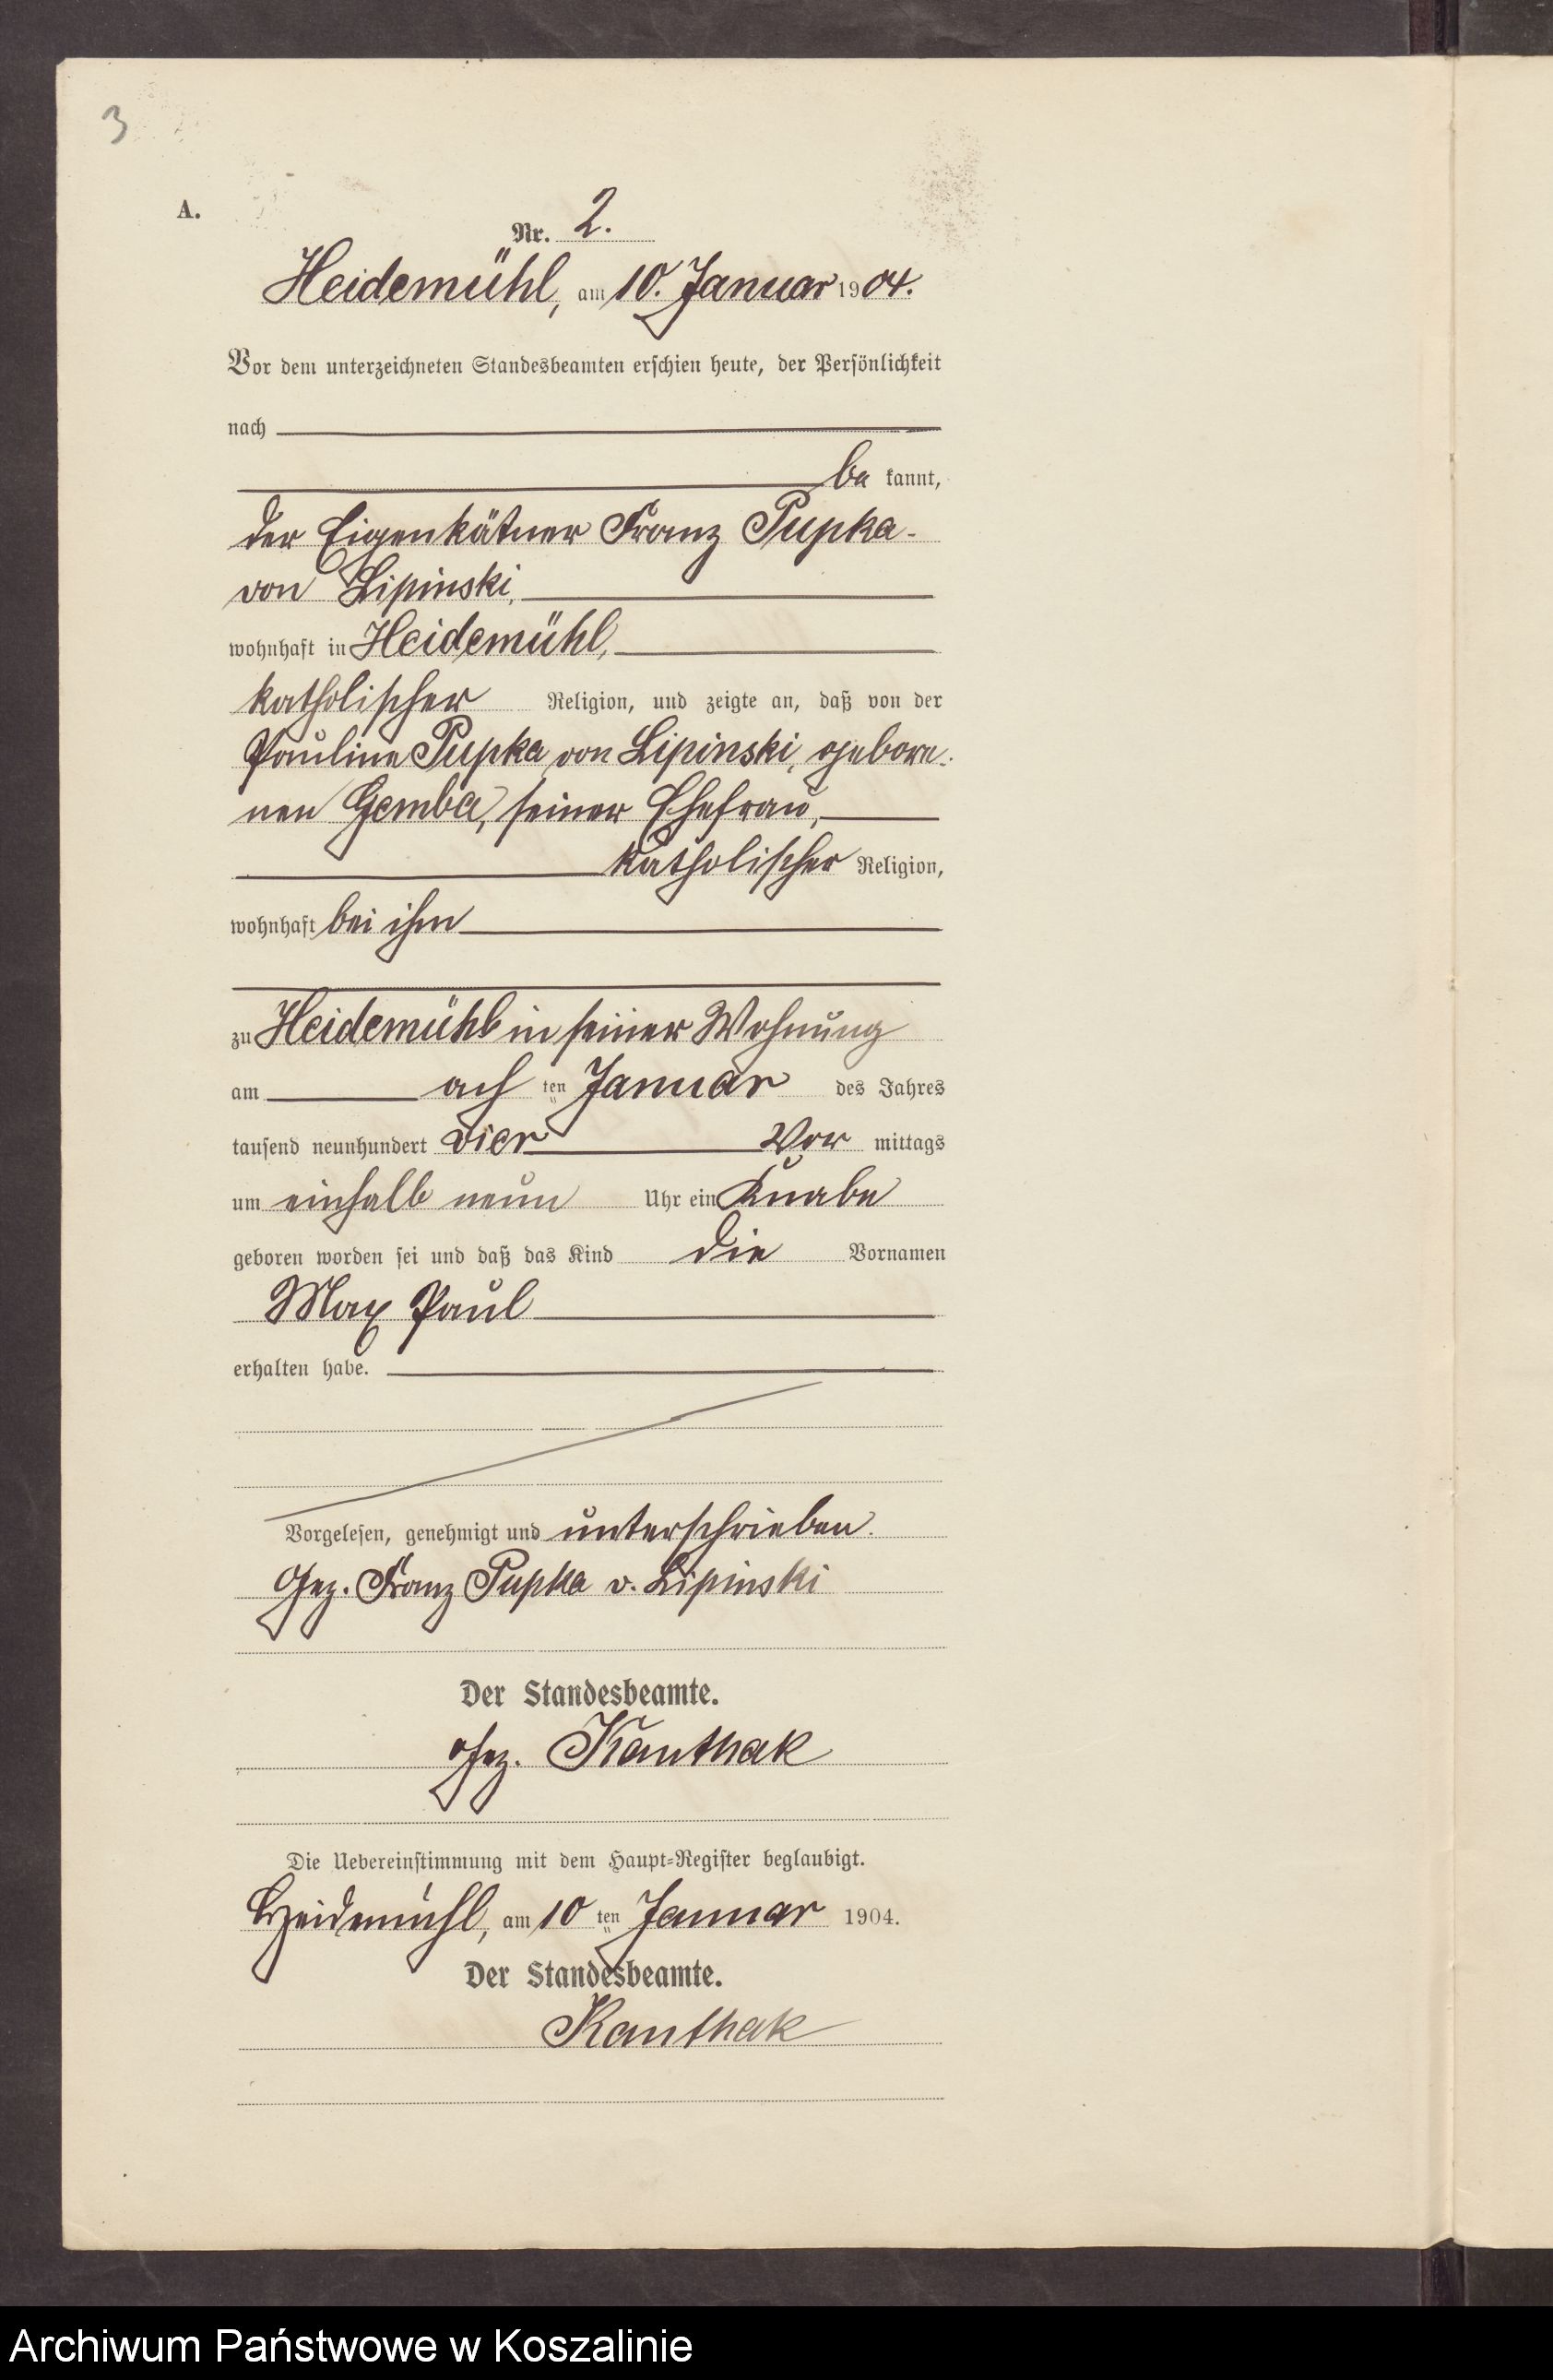 3
A.
Nr. 2.
Heidemühl, am 10. Januar 1904.
Vor dem unterzeichneten Standesbeamten erschien heute, der Persönlichkeit
nach
be kannt,
der Eigenkätner Franz Pupka-
von Lipinski,
wohnhaft in Heidemühl,
katholischer Religion, und zeigte an, daß von der
Pauline Pupka von Lipinski, gebore-
nen Gemba, seiner Ehefrau,
katholischer Religion,
wohnhaft bei ihm
zu Heidemühl in seiner Wohnung
am ach ten Januar des Jahres
tausend neunhundert vier Vor mittags
um einhalb neun Uhr ein Knabe
geboren worden sei und daß das Kind die Vornamen
Max Paul
erhalten habe.
Vorgelesen, genehmigt und unterschrieben.
Gez. Franz Pupka v. Lipinski
Der Standesbeamte.
Gez. Kanthak
Die Uebereinstimmung mit dem Haupt-Register beglaubigt.
Heidemühl, am 10 ten Januar 1904.
Der Standesbeamte.
Kanthak
Archiwum Państwowe w Koszalinie